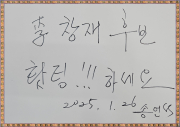 李 창재 후보
화팅!!! 하세요
2025. 1. 26 송연숙